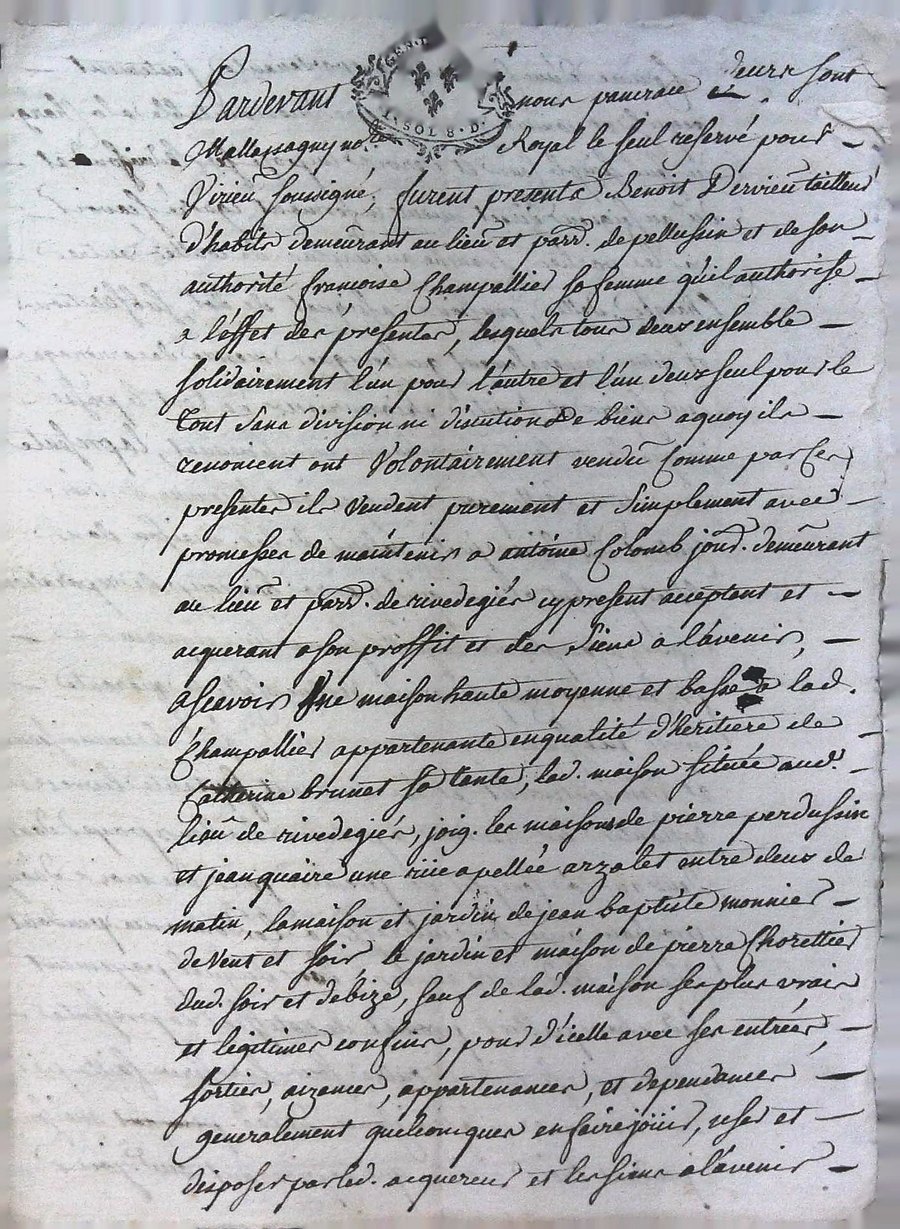 Pardevant nous pancrace sont
Mallassagny no.re Royal le seul reservé pour
Virieu soussigné, furent presents Benoit Dervieu tailleur
d'habits demeurant au lieu et parr. de pellussin et de son
authorité francoise Champallier sa femme qu'il authorise
a l'éffet des présentes, lesquels tous deux ensemble
solidairement l'un pour l'autre et l'un deux seul pour le
tout sans division ni discution de biens a quoy ils
renoncent ont Volontairement vendu Comme par Ces
presentes ils vendent purement et simplement avec
promesses de maintenir a antoine Colomb jour. demeurant
au lieu et parr. de rivedegiér cy present acceptant et
acquerant a son proffit et des siens a l'avenir,
ascavoir Une maison haute moyenne et basse a lad.
Champallier appartenante en qualité d'heritiere de
Catherine brunet sa tante, lad. maison située aud.
lieu de rivedegiér, joig. les maisons de pierre perdussin
et jean quaire une rüe apellée arzalet entre deux de
matin, la maison et jardin de jean baptiste monnier
de vent et soir le jardin et maison de pierre Chorettier
dud. soir et debize, sauf de lad. maison ses plus vrais
et legitimes confins, pour d'icelle avec ses entrées,
sorties, aizances, appartenances, et dependances
generalement quelconques en faire joüir, user et
disposer par led. acquereur et les siens a l'avenir